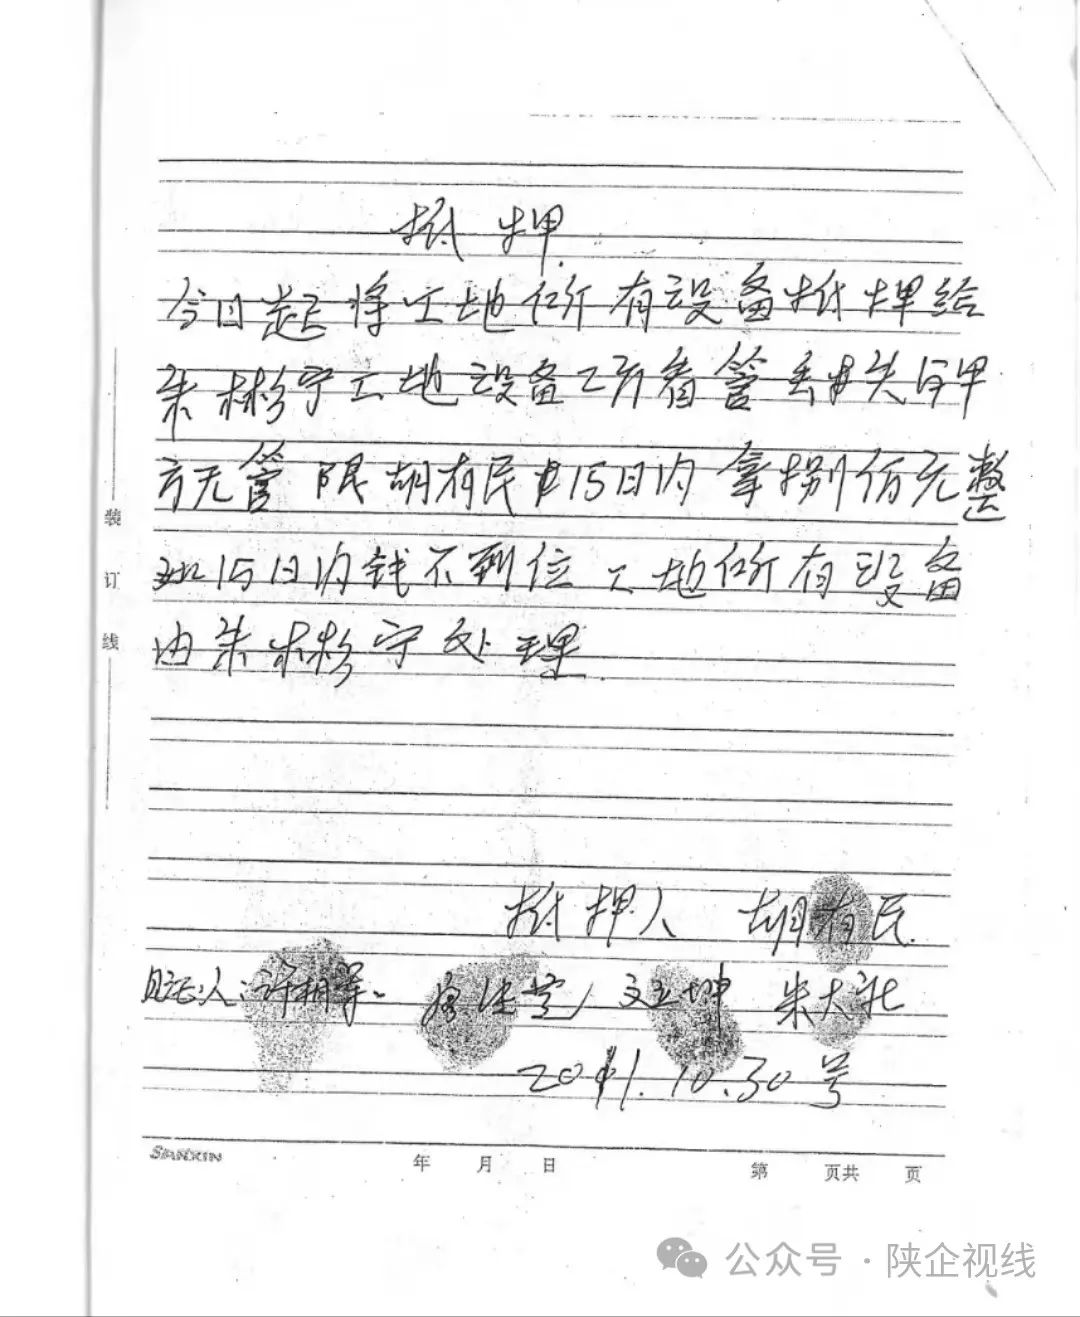 抵押
今日起将工地所有设备抵押给
朱彬宁工地设备工所看管丢失与甲
方无管 限胡有民15日内拿捌仟元整
如15日内钱不到位 工地所有设备
由朱彬宁处理.
抵押人 胡有民.
见证人:许相 文立坤 朱大
2011.10.30号
装
订
线
SANXIN
年 月 日 第 页共 页
公众号·陕企视线